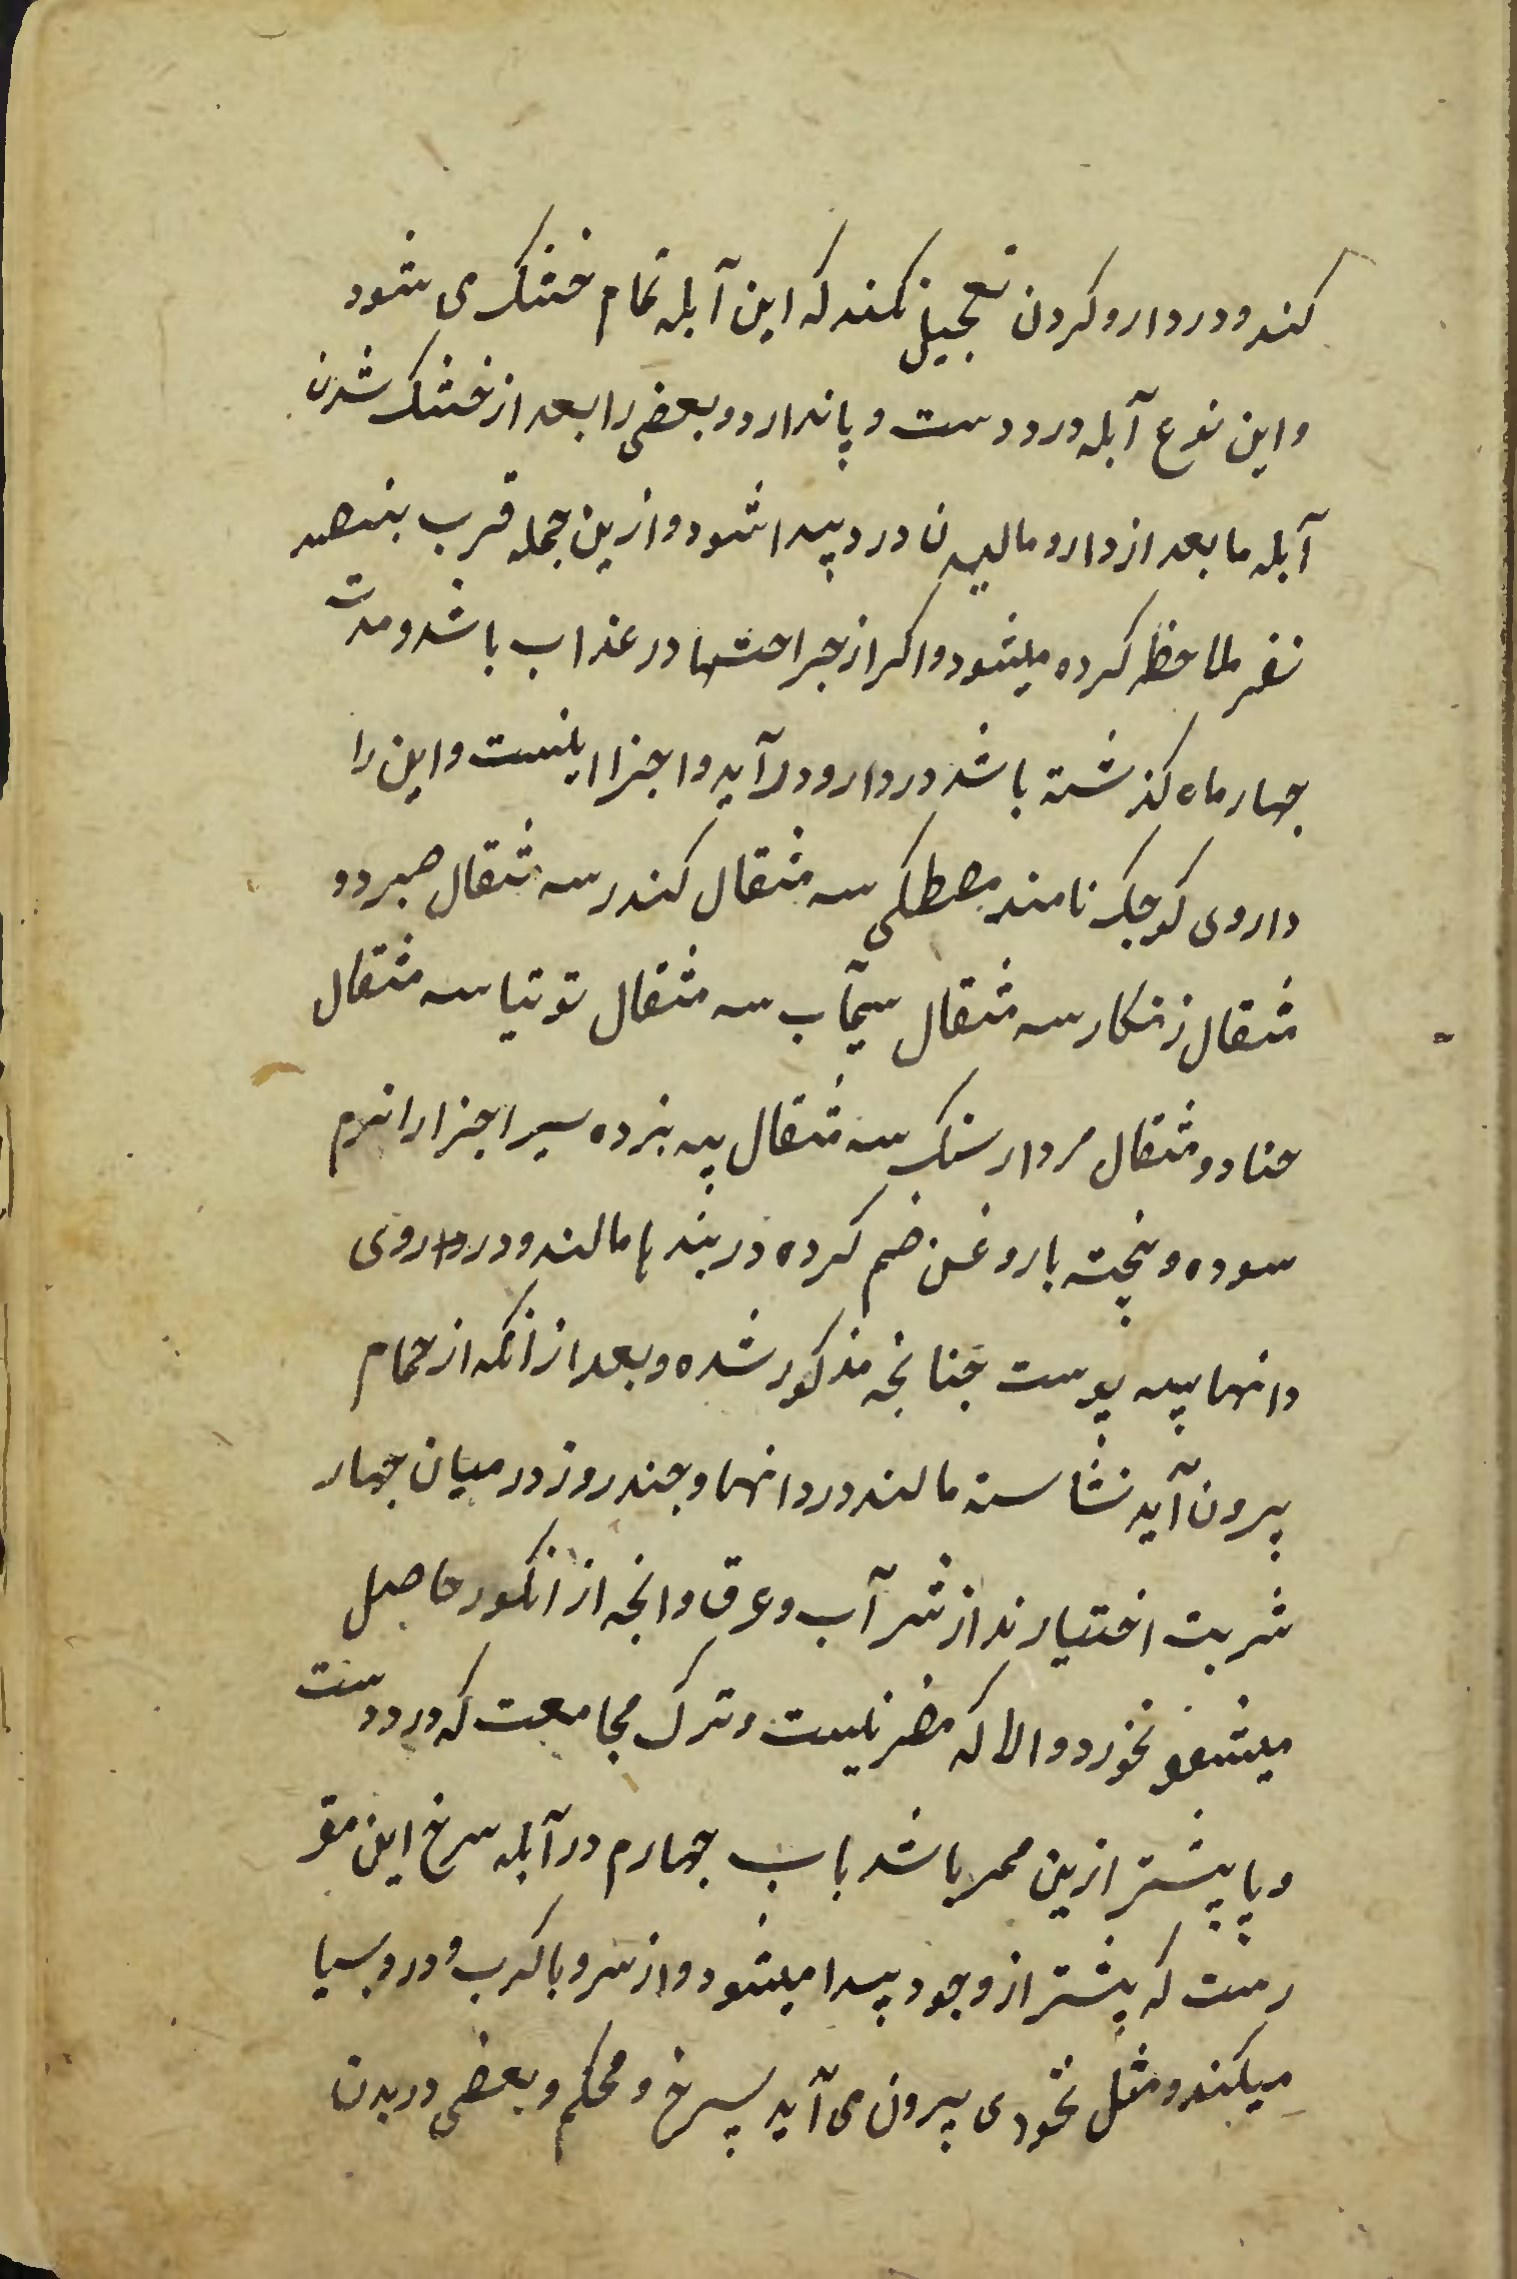 کند و در دارو کردن تعجیل نکند که این آبله تمام خشک می شود
و این نوع آبله درد دست و پا ندارد و بعضی را بعد از خشک شدن
آبله ما بعد از دارو مالیدن درد پیدا شود و ازین جمله قرب پنصد
نفر ملاحظه کرده میشود و اکر از جراحتها در عذاب باشد و مدت
جهار ماه کذشته باشد در دارو در آید و اجزا اینست و این را
داروی کوجک نامند مصطکی سه مثقال کندر سه مثقال صبر دو
مثقال زنکار سه مثقال سیمآب سه مثقال توتیا سه مثقال
حنا دو مثقال مردار سنک سه مثقال پیه بز ده سیر اجزا را نرم
سوده و پخته با روغن ضم کرده در بندها مالند و در داروی
دانها پیه پوست جنانجه مذکور شده و بعد از آنکه از حمام
بیرون آید نشاسته مالند در دانها و جند روز در میان جهار
شربت اختیارند از شرآب و عرق و انجه از انکور حاصل
میشود نخورد والا که مضر نیست و ترک مجامعت که درد دست
و پا پیشتر ازین ممر باشد باب جهارم در آبله سرخ این مقر
رست که پیشتر از وجود پیدا میشود و از سر و پا کرب و درد بسیا
میکند و مثل نخودی بیرون می آید سرخ و محکم و بعضی در بدن